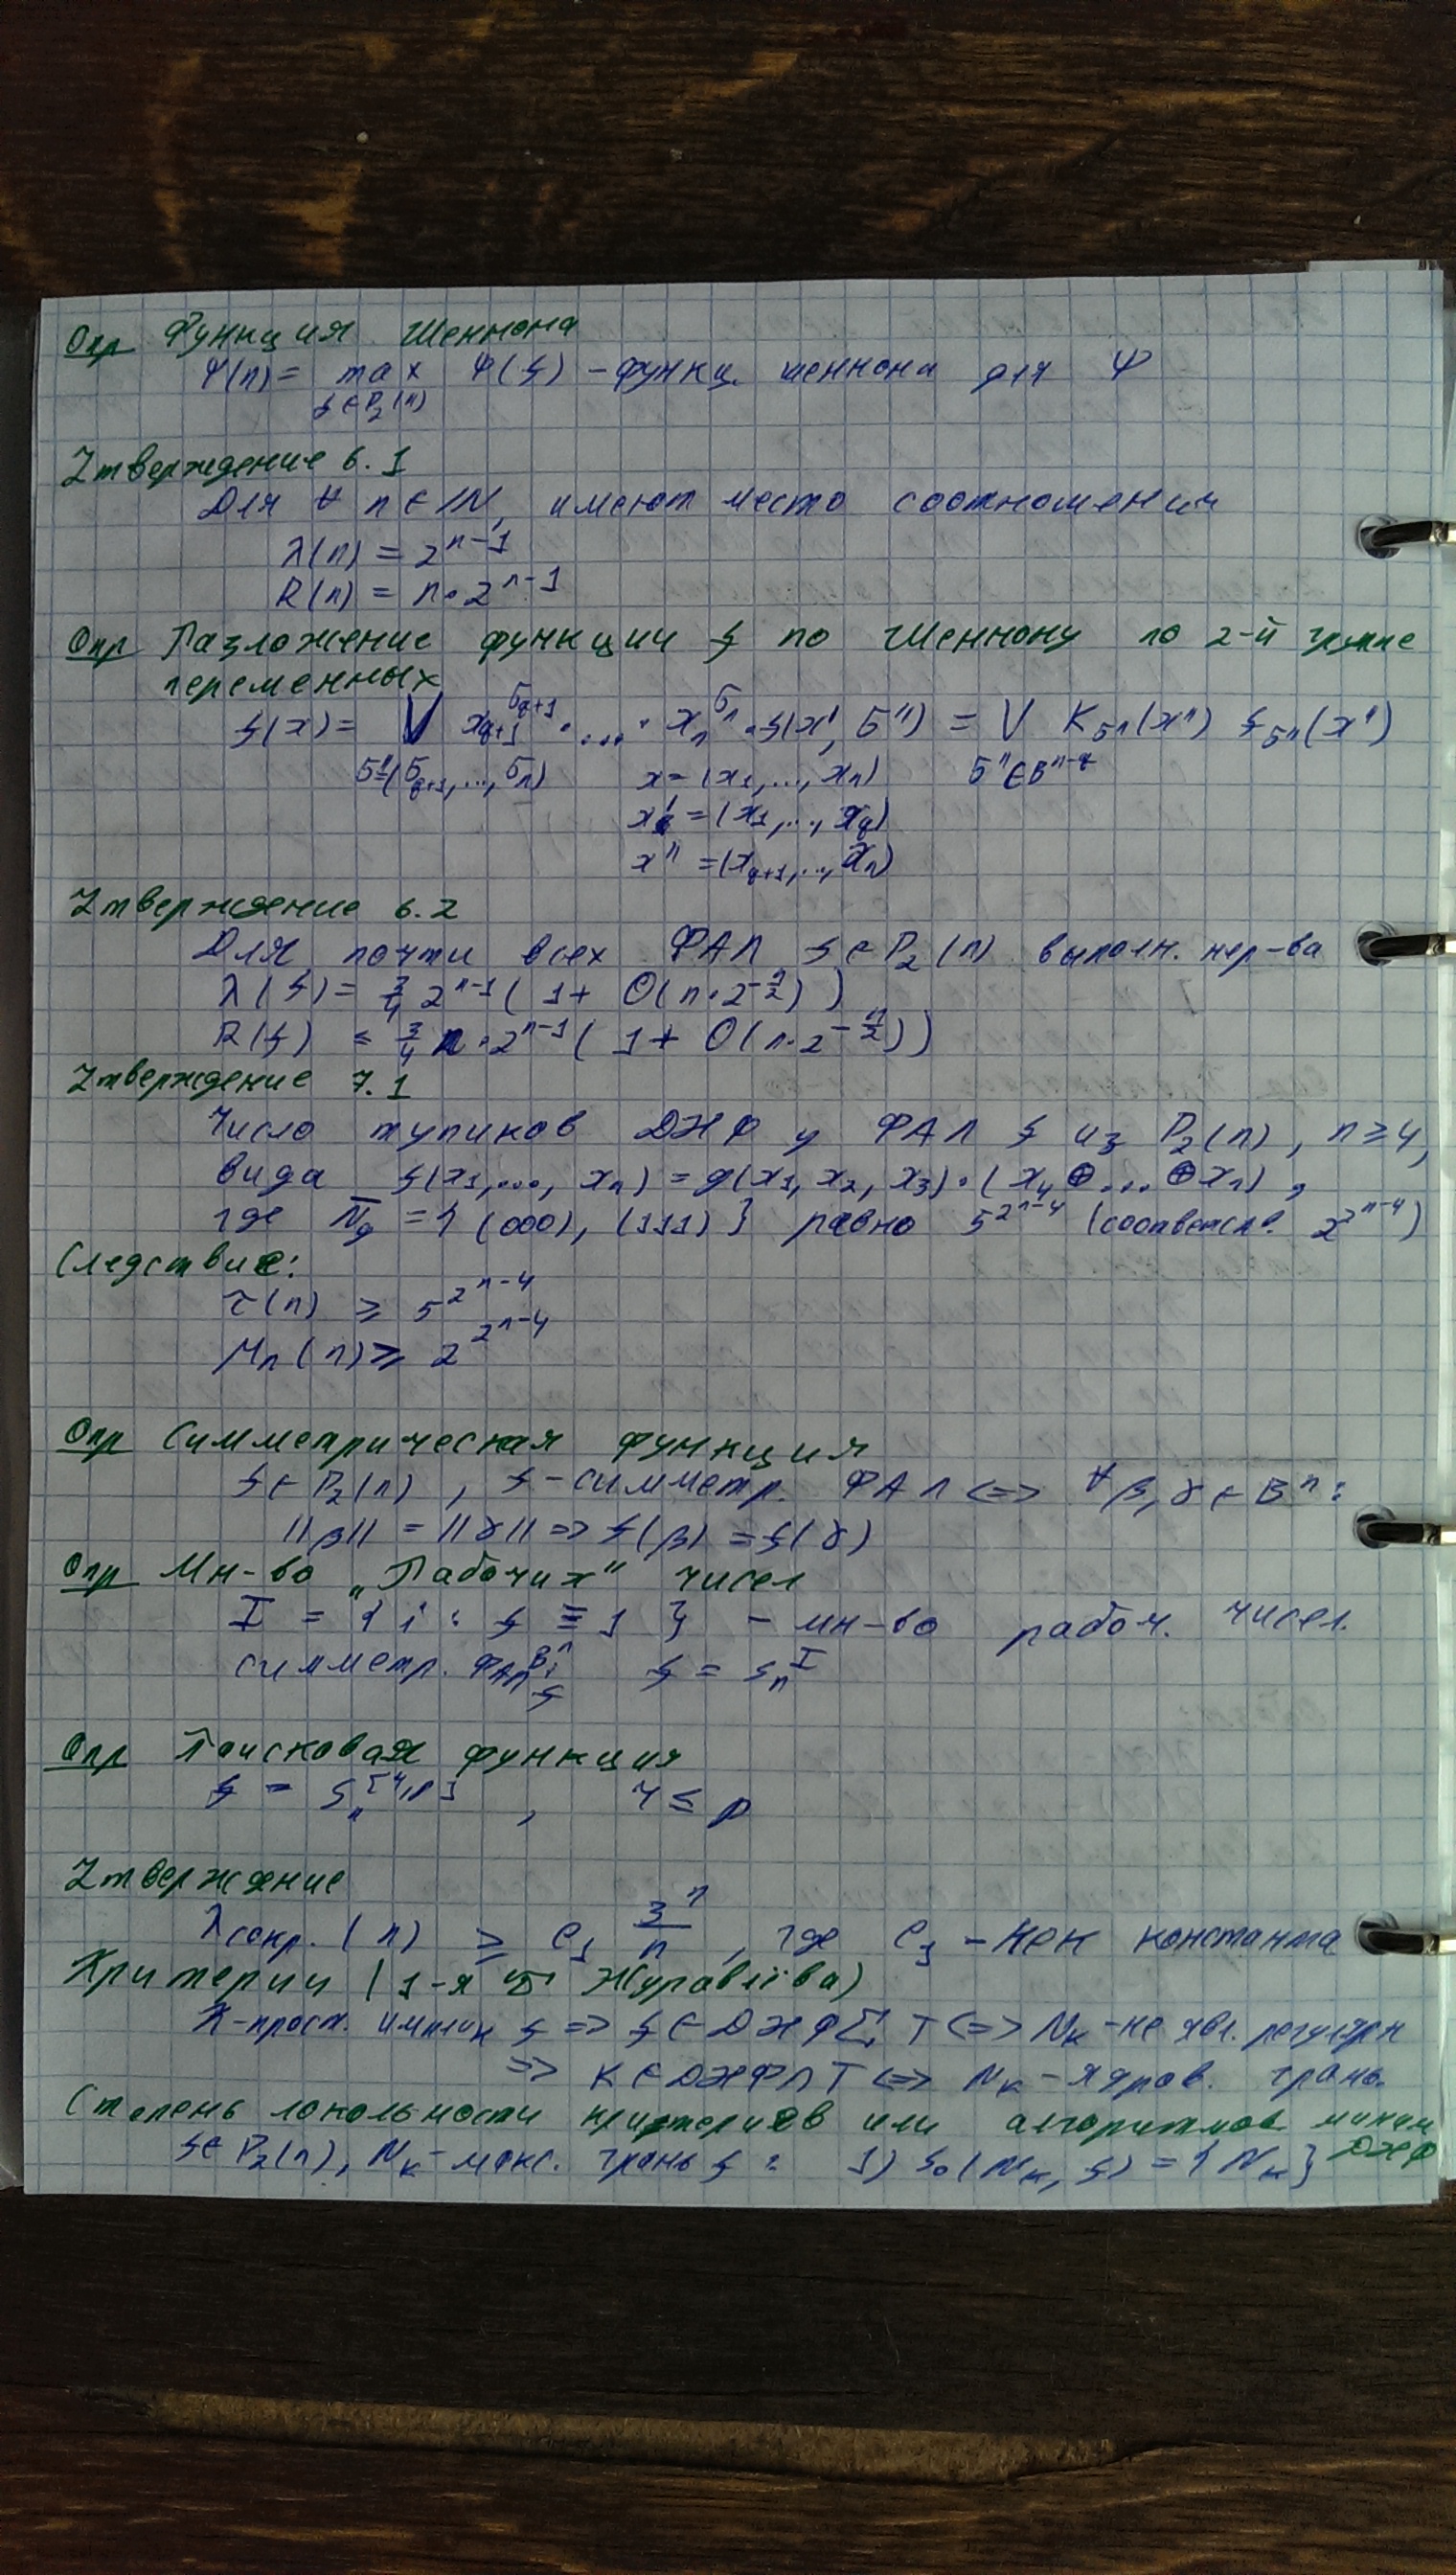 Опр Функция Шеннона
Ψ(n) = max Ψ(f) – функц. шеннона для Ψ
f∈P₂(n)
Утверждение 6.1
Для ∀ n ∈ ℕ, имеют место соотношения
λ(n) = 2ⁿ⁻¹
R(n) = n·2ⁿ⁻¹
Опр Разложение функции f по Шеннону по 2-й группе
переменных
f(x) = ⋁ x_{q+1}^{σ_{q+1}} · ... · x_n^{σ_n} · f(x', σ") = ⋁ K_{σ"}(x") f_{σ"}(x')
σ"=(σ_{q+1},..., σ_n) x = (x₁,..., x_n) σ"∈B^{n-q}
x' = (x₁,..., x_q)
x" = (x_{q+1},..., x_n)
Утверждение 6.2
Для почти всех ФАЛ f ∈ P₂(n) выполн. нер-ва
λ(f) = 3/4 2ⁿ⁻¹ ( 1 + O(n·2^{-n/2}) )
R(f) ≤ 3/4 n·2ⁿ⁻¹ ( 1 + O(n·2^{-n/2}) )
Утверждение 7.1
Число тупиков ДНФ у ФАЛ f из P₂(n), n ≥ 4,
вида f(x₁,..., x_n) = g(x₁, x₂, x₃)·(x₄ ⊕ ... ⊕ x_n),
где N̄_g = { (000), (111) } равно 5^{2^{n-4}} (соответств. 2^{2^{n-4}})
Следствие:
τ(n) ≥ 5^{2^{n-4}}
μ_n(n) ≥ 2^{2^{n-4}}
Опр Симметрическая функция
f ∈ P₂(n), f – симметр. ФАЛ <=> ∀ β, γ ∈ Bⁿ:
||β|| = ||γ|| => f(β) = f(γ)
Опр Мн-во „Рабочих" чисел
I = { i : f ≡ 1 } – мн-во рабоч. чисел.
B_iⁿ
симметр. ФАЛ f f = s_n^I
Опр Поисковая функция
f = s_n^{[r,p]}, r ≤ p
Утверждение
λсокр.(n) ≥ c₁ 3ⁿ/n, где c₁ – нек константа
Критерии (1-я Журавлёва)
K-прост. имплик f => f ∈ ДНФ Σ T <=> N_K – не явл. регулярн
=> K ∈ ДНФ ∩ T <=> N_K – ядров. грань.
Степень локольности критериев или алгоритмов миним
ДНФ
f ∈ P₂(n), N_K – макс. грань f : 1) S₀(N_K, f) = { N_K }